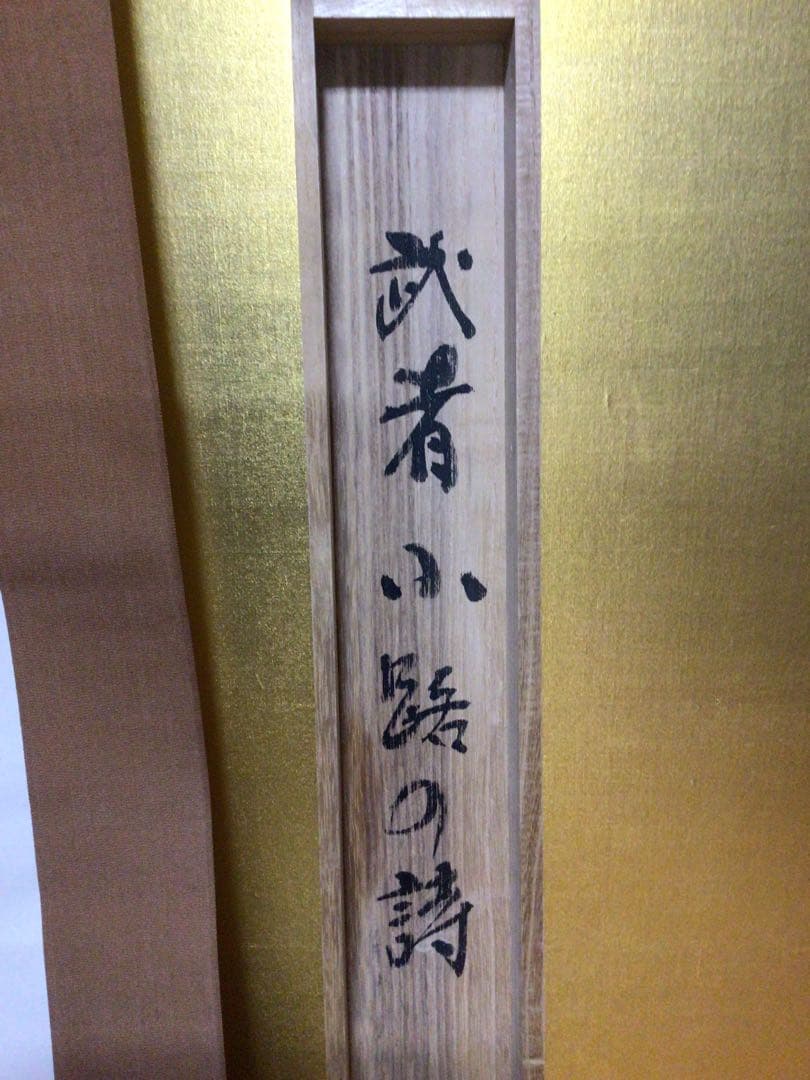 武者小路の詩